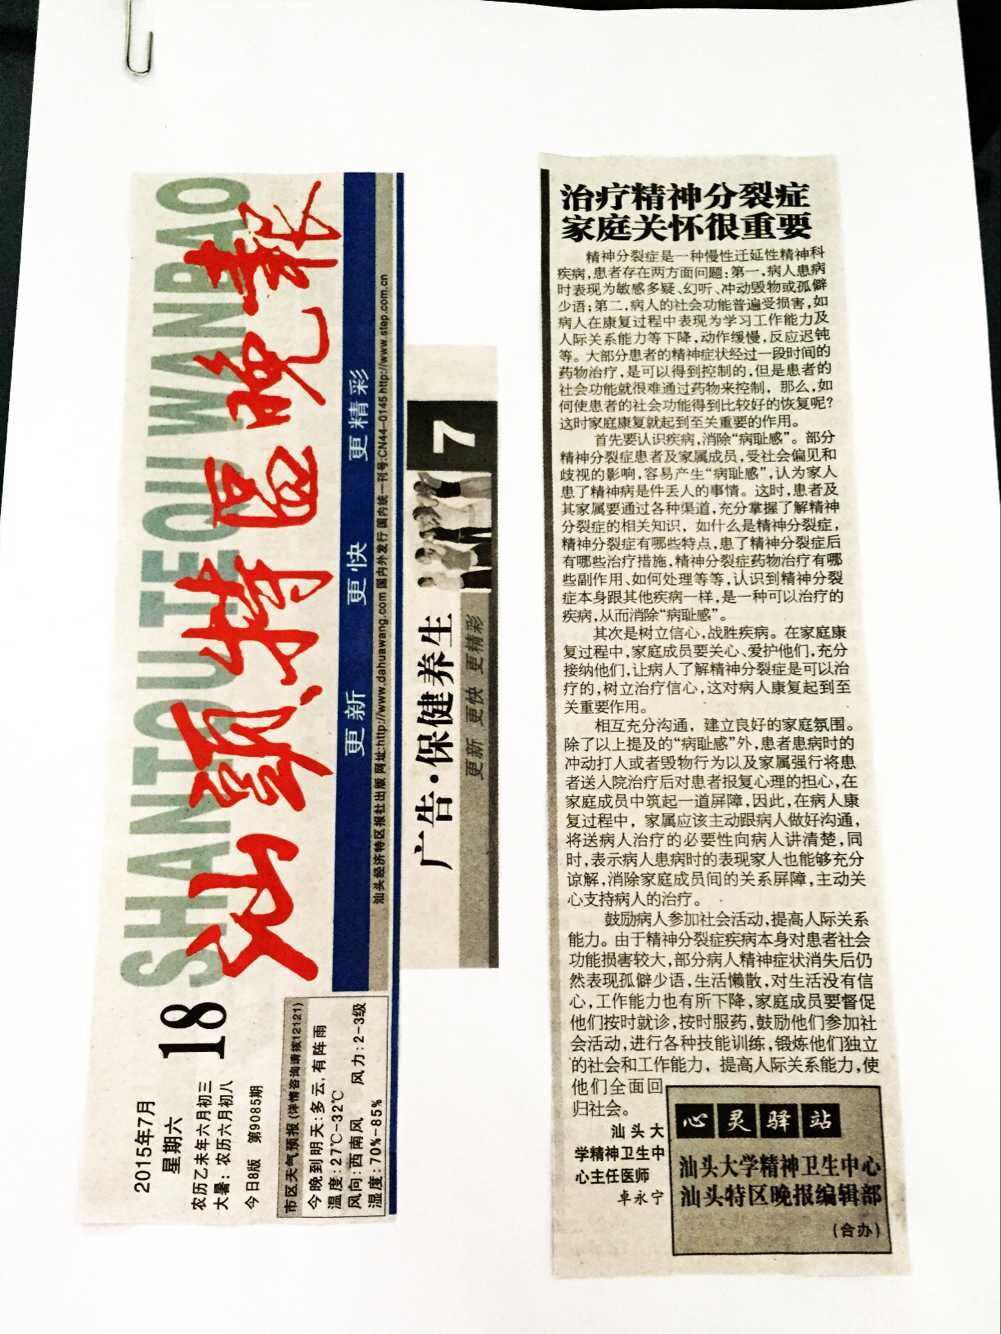 SHANTOU TEQU WANBAO
汕頭特區晚報
更新 更快 更精彩
汕头经济特区报社出版 网址:http://www.dahuawang.com 国内外发行 国内统一刊号:CN44-0145 http://www.step.com.cn
2015年7月
18
星期六
农历乙未年六月初三
大暑:农历六月初八
今日8版 第9085期
市区天气预报(详情咨询请拨12121)
今晚到明天:多云,有阵雨
温度:27℃-32℃
风向:西南风 风力:2-3级
湿度:70%-85%
广告·保健养生
7
更新 更快 更精彩
治疗精神分裂症
家庭关怀很重要
精神分裂症是一种慢性迁延性精神科
疾病,患者存在两方面问题:第一,病人患病
时表现为敏感多疑、幻听、冲动毁物或孤僻
少语;第二,病人的社会功能普遍受损害,如
病人在康复过程中表现为学习工作能力及
人际关系能力等下降,动作缓慢,反应迟钝
等。大部分患者的精神症状经过一段时间的
药物治疗,是可以得到控制的,但是患者的
社会功能就很难通过药物来控制,那么,如
何使患者的社会功能得到比较好的恢复呢?
这时家庭康复就起到至关重要的作用。
首先要认识疾病,消除“病耻感”。部分
精神分裂症患者及家属成员,受社会偏见和
歧视的影响,容易产生“病耻感”,认为家人
患了精神病是件丢人的事情。这时,患者及
其家属要通过各种渠道,充分掌握了解精神
分裂症的相关知识,如什么是精神分裂症,
精神分裂症有哪些特点,患了精神分裂症后
有哪些治疗措施,精神分裂症药物治疗有哪
些副作用、如何处理等等,认识到精神分裂
症本身跟其他疾病一样,是一种可以治疗的
疾病,从而消除“病耻感”。
其次是树立信心,战胜疾病。在家庭康
复过程中,家庭成员要关心、爱护他们,充分
接纳他们,让病人了解精神分裂症是可以治
疗的,树立治疗信心,这对病人康复起到至
关重要作用。
相互充分沟通,建立良好的家庭氛围。
除了以上提及的“病耻感”外,患者患病时的
冲动打人或者毁物行为以及家属强行将患
者送入院治疗后对患者报复心理的担心,在
家庭成员中筑起一道屏障,因此,在病人康
复过程中,家属应该主动跟病人做好沟通,
将送病人治疗的必要性向病人讲清楚,同
时,表示病人患病时的表现家人也能够充分
谅解,消除家庭成员间的关系屏障,主动关
心支持病人的治疗。
鼓励病人参加社会活动,提高人际关系
能力。由于精神分裂症疾病本身对患者社会
功能损害较大,部分病人精神症状消失后仍
然表现孤僻少语,生活懒散,对生活没有信
心,工作能力也有所下降,家庭成员要督促
他们按时就诊,按时服药,鼓励他们参加社
会活动,进行各种技能训练,锻炼他们独立
的社会和工作能力,提高人际关系能力,使
他们全面回
归社会。
汕头大
学精神卫生中
心主任医师
卓永宁
心灵驿站
汕头大学精神卫生中心
汕头特区晚报编辑部
(合办)